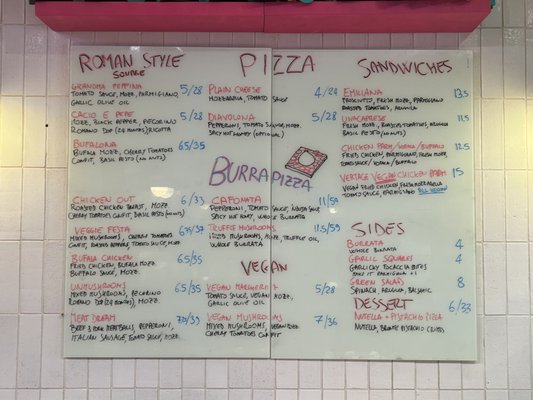 ROMAN STYLE
SQUARE
GRANDMA PEPPINA 5/28
TOMATO SAUCE, MOZZ, PARMIGIANO,
GARLIC OLIVE OIL
CACIO E PEPE 5/28
MOZZ, BLACK PEPPER, PECORINO
ROMANO DOP RICOTTA
BUFALONA 6.5/35
BUFALA MOZZ, CHERRY TOMATOES
CONFIT, BASIL PESTO (NO NUTS)
CHICKEN OUT 6/33
ROASTED CHICKEN BREAST, MOZZ
CHERRY TOMATOES CONFIT, BASIL PESTO (NO NUTS)
VEGGIE FESTA
MIXED MUSHROOMS, CHERRY TOMATOES
CONFIT, ROASTED PEPPERS TOMATO SAUCE, MOZZ
BUFALA CHICKEN 6.5/35
FRIED CHICKEN, BUFALA MOZZ
BUFFALO SAUCE, MOZZ.
UNMUSHROOMS 6.5/35
MIXED MUSHROOMS, PECORINO
ROMANO DOP MOZZ.
MEAT DREAM 7.5/39
BEEF & PORK MEATBALLS, PEPPERONI,
ITALIAN SAUSAGE, TOMATO SAUCE, MOZZ.
PIZZA
PLAIN CHEESE 4/24
MOZZARELLA, TOMATO SAUCE
DIAVOLONA 5/28
PEPPERONI, TOMATO SAUCE, MOZZ.
SPICY HOT HONEY (OPTIONAL)
BURRAPIZZA
CAPONATA 11/59
PEPPERONI, TOMATO SAUCE, NDUJA SAUCE
SPICY HOT HONEY, WHOLE BURRATA
TRUFFLE MUSHROOMS 11.5/59
MIXED MUSHROOMS, MOZZ, TRUFFLE OIL,
WHOLE BURRATA
VEGAN
VEGAN MARGHERITA 5/28
TOMATO SAUCE, VEGAN MOZZ,
GARLIC OLIVE OIL
VEGAN MUSHROOMS 7/36
MIXED MUSHROOMS, VEGAN MOZZ
CHERRY TOMATOES CONFIT
SANDWICHES
EMILIANA 13.5
PROSCIUTTO, FRESH MOZZ, PARMIGIANO
ROASTED TOMATOES, ARUGULA
VIVACAPRESE 11.5
FRESH MOZZ, ROASTED TOMATOES, ARUGULA
BASIL PESTO (NO NUTS)
CHICKEN PARM/VODKA/BUFFALO 12.5
FRIED CHICKEN, PARMIGIANO, FRESH MOZZ,
TOMATO SAUCE/VODKA/BUFFALO
VERTAGE VEGAN CHICKEN PARM 15
VEGAN FRIED CHICKEN FRESH MOZZARELLA
TOMATO SAUCE, PARMIGIANO ALL VEGAN
SIDES
BURRATA 4
WHOLE BURRATA
GARLIC SQUARES 4
GARLICKY FOCACCIA BITES
MAKE IT PARMIGIANA +1
GREEN SALAD 8
SPINACH ARUGULA, BALSAMIC
DESSERT 6/33
NUTELLA + PISTACHIO PIZZA
NUTELLA, BRONTE PISTACHIO